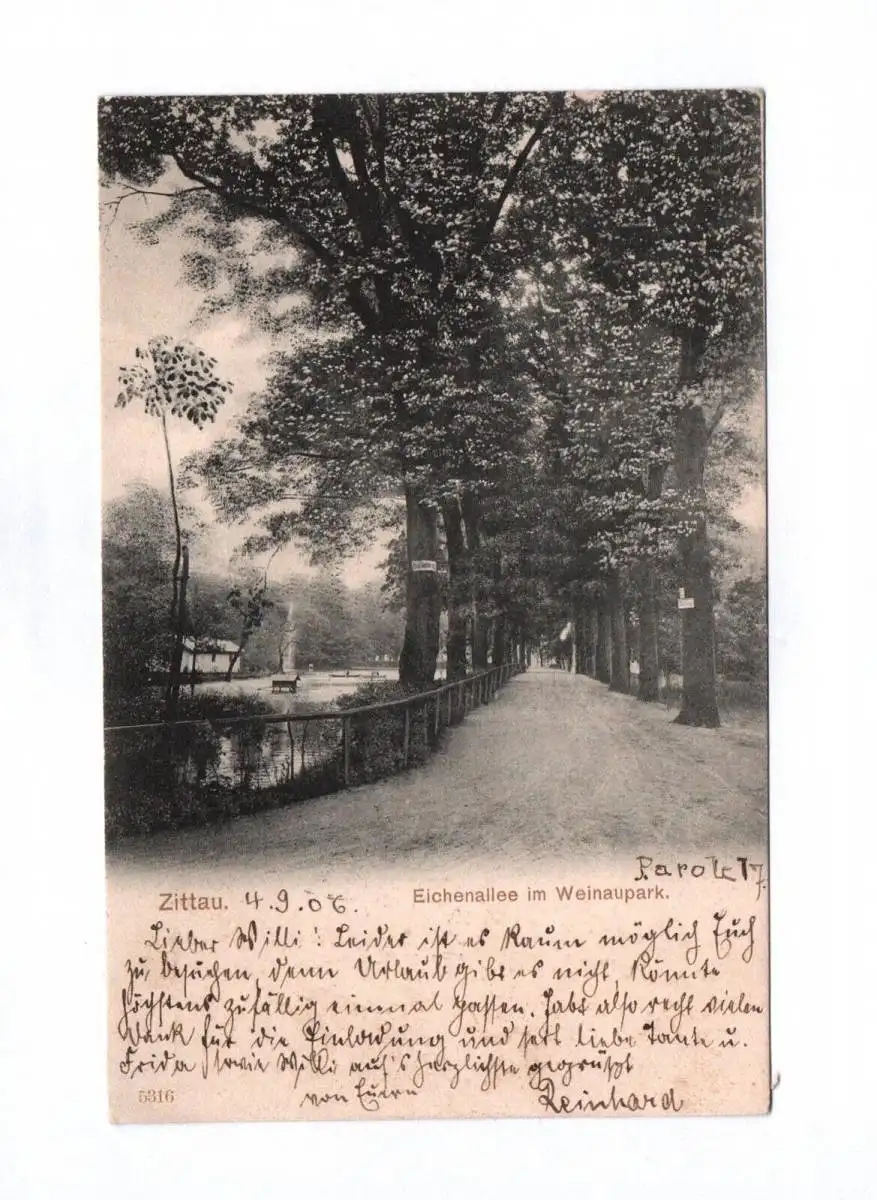 Parole 17
Zittau. 4.9.06. Eichenallee im Weinaupark.
Lieber Willi! Leider ist es kaum möglich Euch
zu besuchen, denn Urlaub gibt es nicht, könnte
höchstens zufällig einmal passen. Habt also recht vielen
Dank für die Einladung und seit liebe Tante u.
Frida sowie Willi auf's herzlichste gegrüßt
von Euern Reinhard
5316